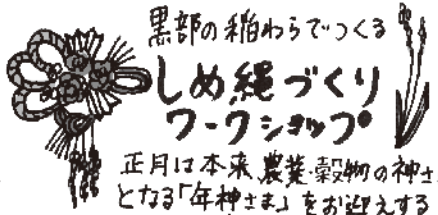 黒部の稲わらでつくる
しめ縄づくり
ワークショップ
正月は本来、農業・穀物の神さ
となる「年神さま」をお迎えする